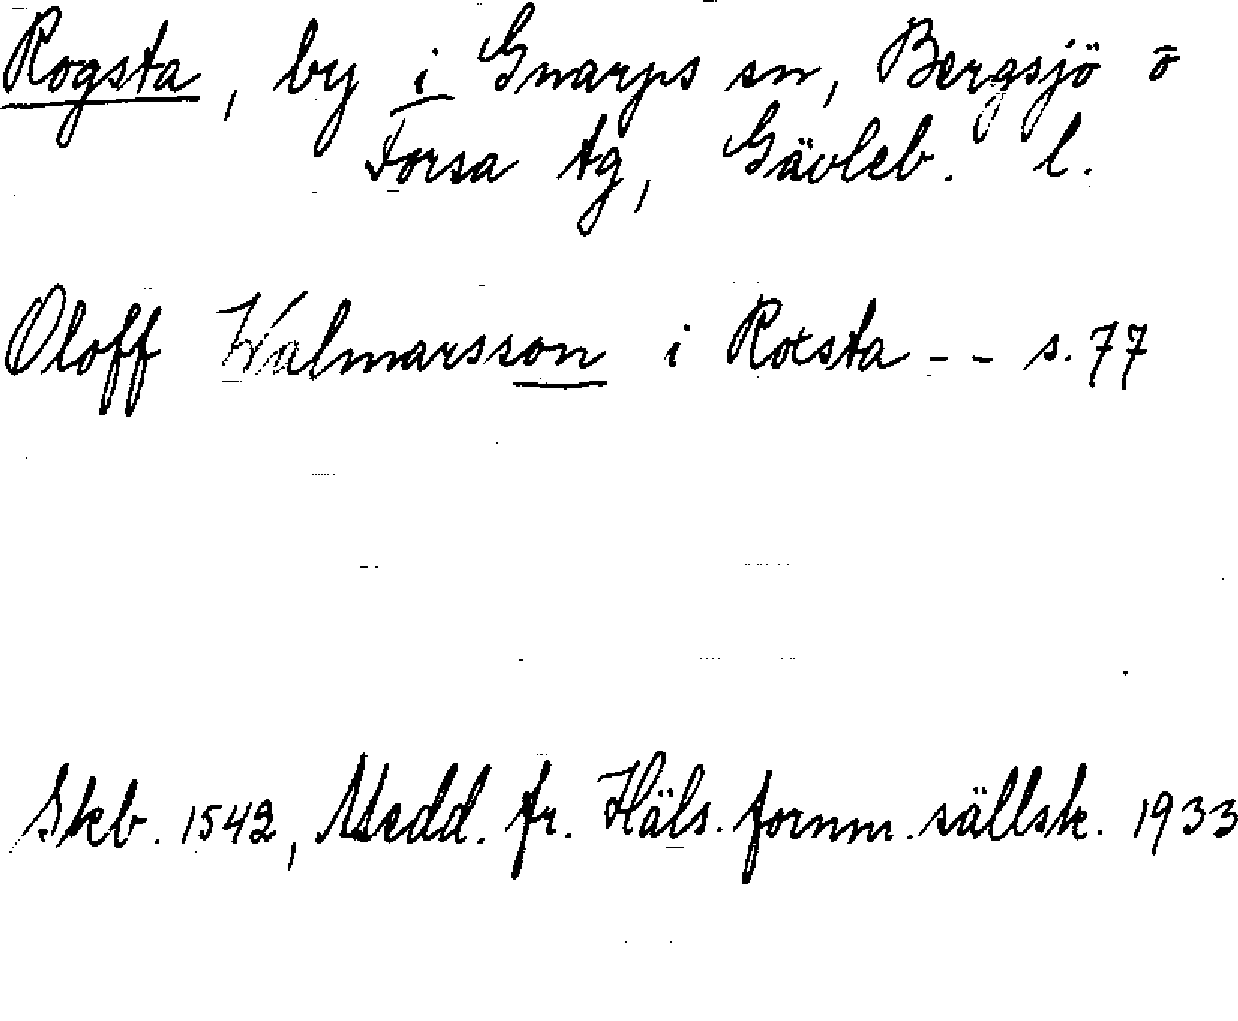 Rogsta, by i Gnarps sn, Bergsjö o
Forsa tg, Gävleb. l.
Oloff Walmarsson i Rotsta -- s. 77
Skb. 1542, Medd. fr. Häls. fornm. sällsk. 1933